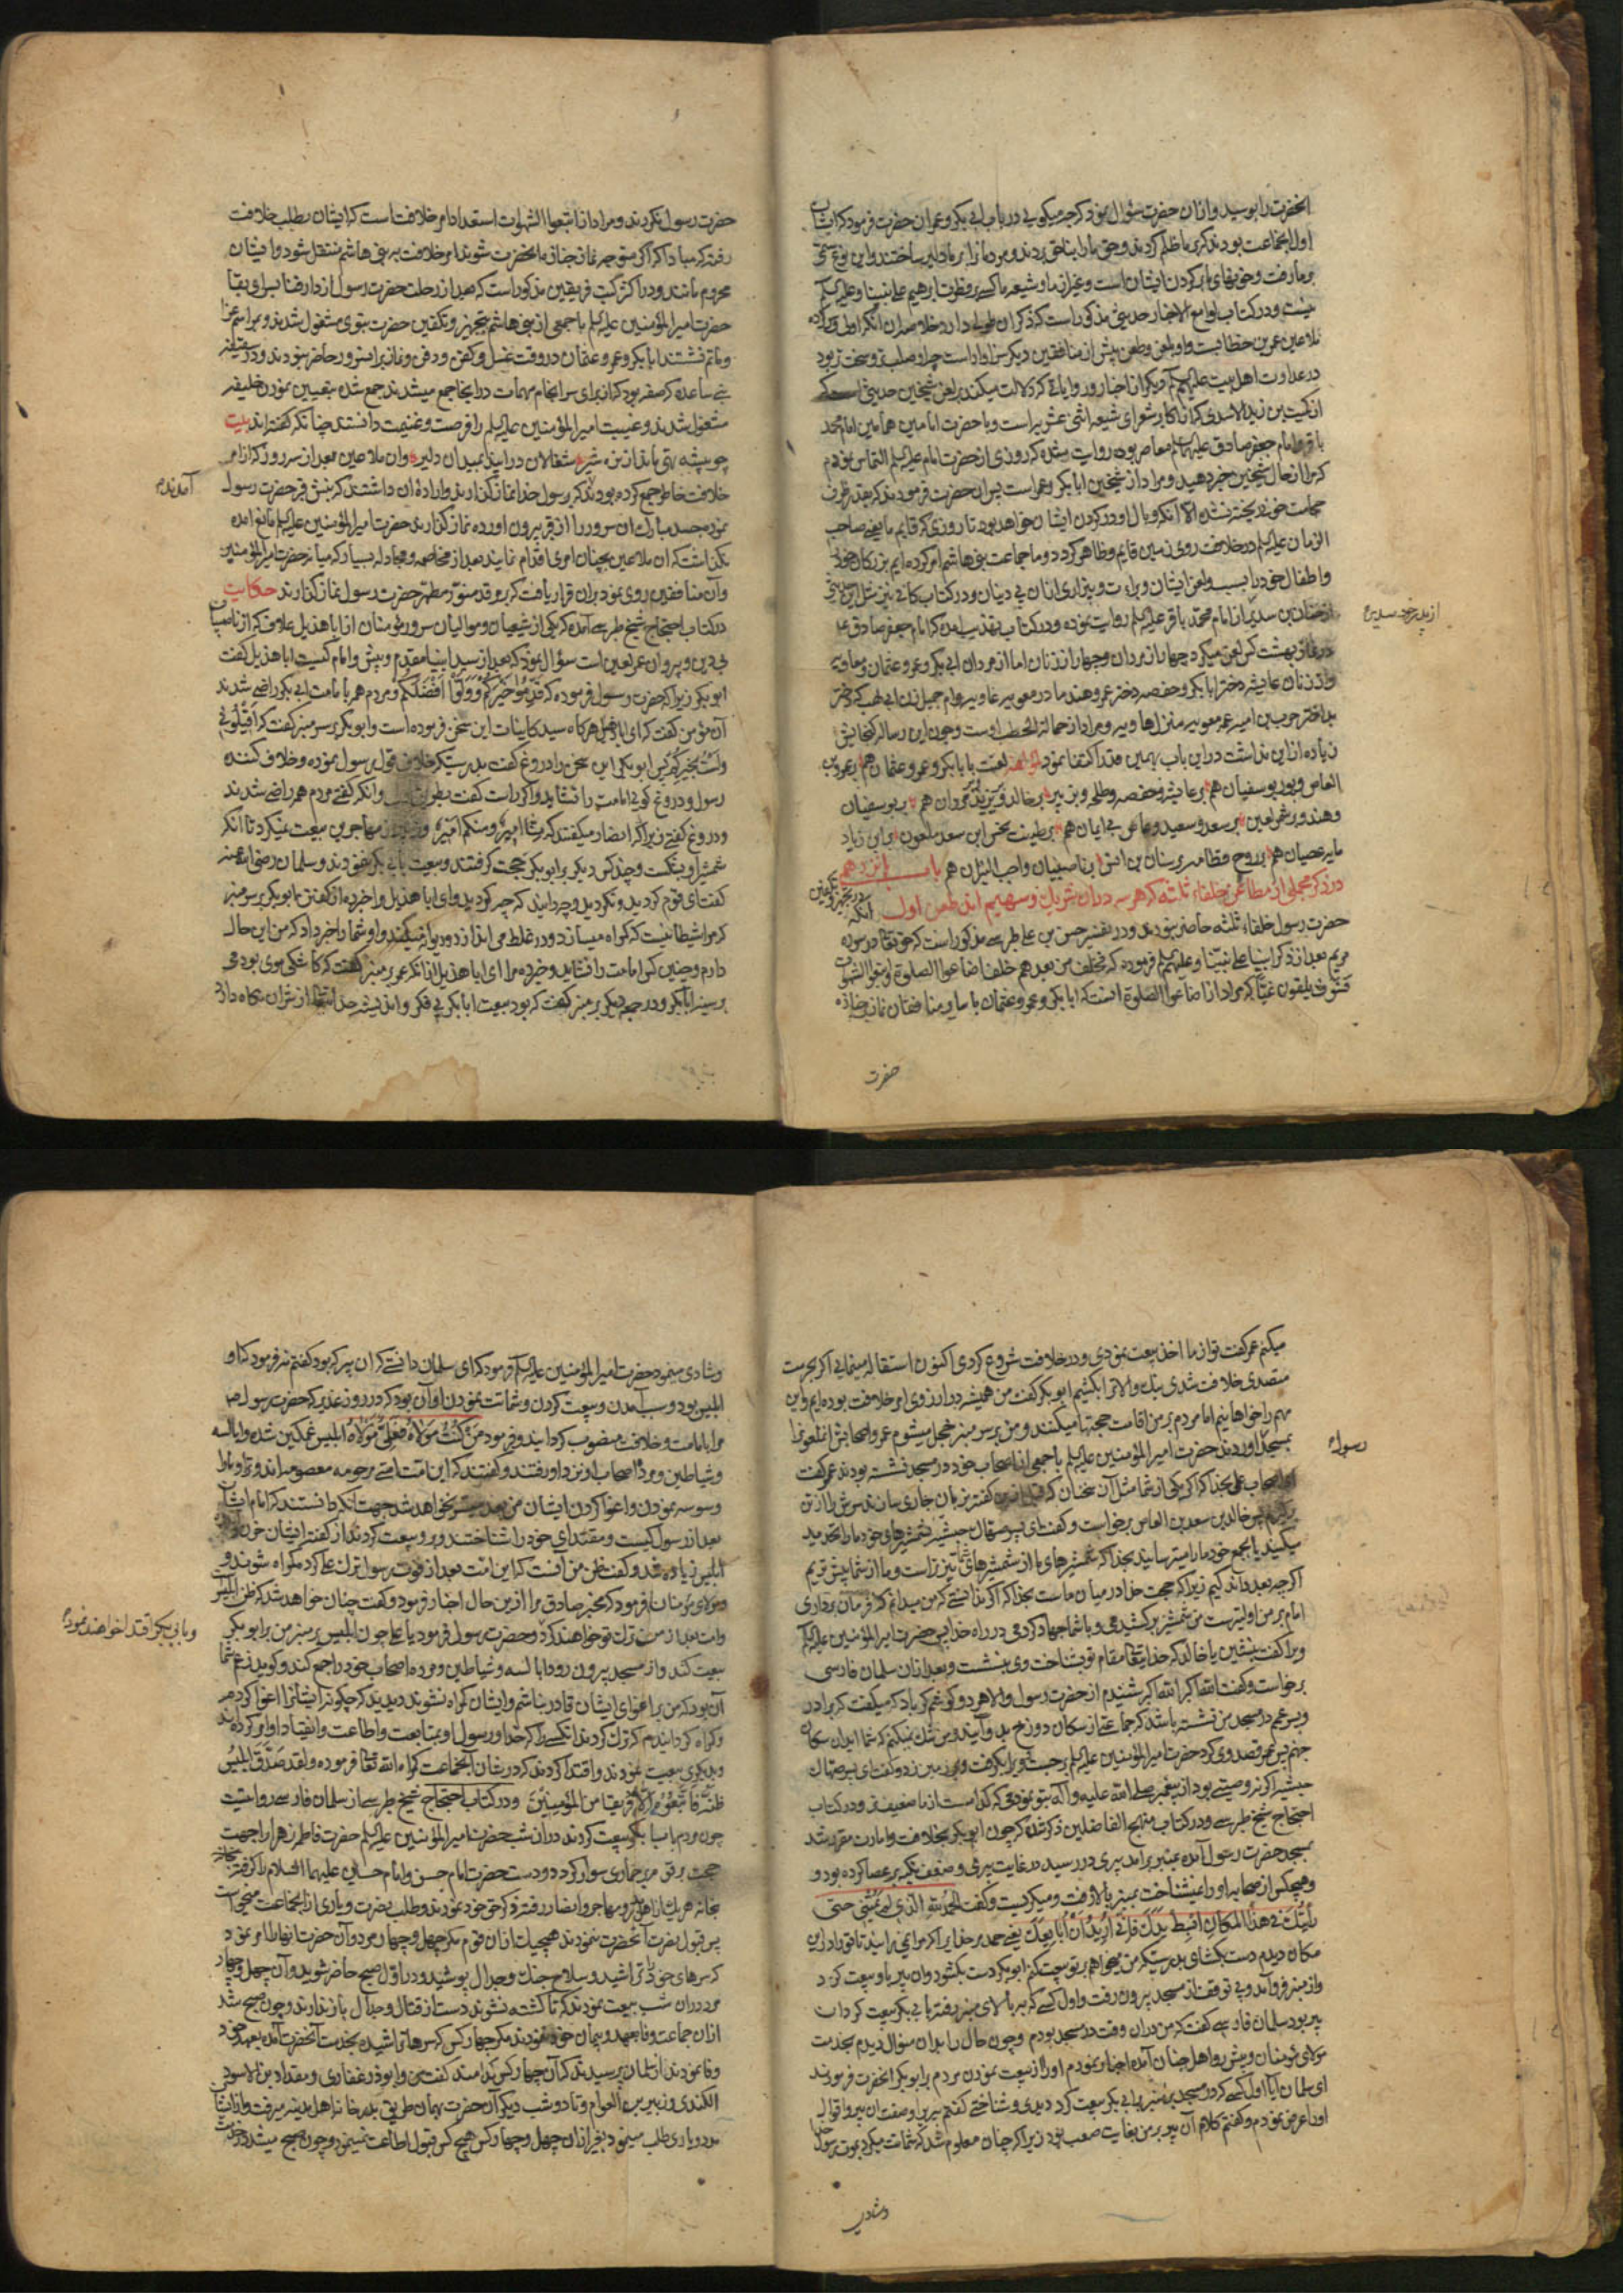 انحضرت را بوسید و ازان حضرت سؤال نمود که چه میکویی در باب ابی بکر و عمر ان حضرت فرمود که ایشان
اول جماعت بودند که بر ما ظلم کردند و حق ما را بناحق بردند و مردمانرا بر ما دلیر ساختند
نیست و در کتاب لوامع الانوار حدیثی مذکور است که ذکر ان طولی دارد و خلاصه ان انکه اول
ملاعین عمر بن خطابست و او بلعن و طعن پیش از منافقین دیکر سزاوار است چرا
در عداوت اهل بیت علیهم السلم و دیکر از اخبار و روایاتی که دلالت میکند بر لعن شیخین حدیثی است که
از کمیت بن زید الاسدی که از اکابر شعرای شیعه اثنی عشریه است و با حضرت امامین همامین امام محمد
باقر و امام جعفر صادق علیهما السلم معاصر بوده روایت شده که روزی از حضرت امام علیه السلم التماس نمودم
که مرا از حال شیخین خبر دهید و مراد از شیخین ابابکر و عمر است پس ان حضرت فرمودند که بقدر ظرف
حجامت خون ریخته نشده الا انکه وبال او در کردن ایشان خواهد بود تا روزی که قایم ما یعنی صاحب
الزمان علیه السلم در خلافت روی زمین قایم و ظاهر کردد و ما جماعت بنی هاشم امر کرده ایم بزرکان خود
و اطفال خود را بسب و لعن ایشان و براءت و بیزاری ازان بی دینان و در کتاب کافی نیز مثل این حدیثی
از حنان بن سدیر از امام محمد باقر علیه السلم روایت نموده و در کتاب تهذیب آمده که امام جعفر صادق ع
کس لعن میکرد چهار از مردان و چهار از زنان اما از مردان ابی بکر و عمر و عثمان و معاویه
و از زنان عایشه دختر ابابکر و حفصه دختر عمر و هند مادر معویه غاویه و ام جمیل زن ابی لهب که دختر
از پدر خود سدیر
زیاده ازین نداشت درین باب بهمین قدر اکتفا نمود لعنت با بابکر و عمر و عثمان هم
العاص و بوسفیان هم بر عایشه و حفصه و طلحه و زبیر
و هند و شمر لعین بر سعد و سعید
بر روح
باب یازدهم
در ذکر مجملی از مطاعن خلفاء ثلثه که هر سه دران شریک و سهیم اند طعن اول انکه
حضرت رسول خلفاء ثلثه حاضر نبودند و در تفسیر حسن بن علی طبرسی مذکور است که حق تعالی در سوره
مریم بعد از ذکر انبیا علی نبینا و علیهم السلم فرموده که فخلف من بعدهم خلف اضاعوا الصلوة و اتبعوا الشهوات
فسوف یلقون غیا که مراد از اضاعوا الصلوة انست که ابابکر و عمر و عثمان با سایر منافقان نماز جنازه
حضرت
حضرت رسول نکردند و مراد از اتبعوا الشهوات استعداد امر خلافت است که ایشان بطلب خلافت
رفتند که مبادا که اکر متوجه نماز جنازه انحضرت شوند امر خلافت به بنی هاشم منتقل شود و ایشان
محروم مانند و در اکثر کتب فریقین مذکور است که بعد از رحلت حضرت رسول از دار فنا بسرای بقا
حضرت امیر المؤمنین علیه السلم با جمعی از بنی هاشم بتجهیز و تکفین حضرت نبوی مشغول شدند و بمراسم عزا
و ماتم نشستند ابابکر و عمر و عثمان در وقت غسل و کفن و دفن و نماز بران سرور حاضر نبودند و در سقیفه
بنی ساعده که صفه بود که از برای سرانجام مهمات در اینجا جمع میشدند جمع شده بتعیین نمودن خلیفه
مشغول شدند و غیبت امیر المؤمنین علیه السلم را فرصت و غنیمت دانستند چنانکه کفته اند بیت
چو بیشه تهی ماند از نره شیر شغالان در ایند بمیدان دلیر وان ملاعین بعد از سه روز که از امر
خلافت خاطر جمع کرده بودند که بر رسول خدا نماز کذارند و اراده ان داشتند که نبش قبر حضرت رسول
آمدند
نموده جسد مبارک ان سرور را از قبر بیرون اورده نماز کذارند حضرت امیر المؤمنین علیه السلم مانع امده
نکذاشت که ان ملاعین بچنان امری اقدام نمایند بعد از مخاصمه و مجادله بسیار که میانه حضرت امیر المؤمنین
وآن منافقین روی نمود بران قرار یافت که بر مرقد منور مطهر حضرت رسول نماز کذارند حکایت
در کتاب احتجاج شیخ طبرسی آمده که یکی از شیعیان و موالیان سرور مؤمنان از ابا هذیل علاف که از ناصبیان
بی دین و پیروان عمر لعین است سؤال نمود که بعد از سید انبیا مقدم و پیش و امام کیست ابا هذیل کفت
ابو بکر زیرا که حضرت رسول فرموده که قدموا خیرکم و ولوا افضلکم و مردم همه بامامت ابی بکر راضی شدند
آن مؤمن کفت که ای ابا هذیل هرکاه سید کاینات این سخن فرموده است و ابو بکر بر سر منبر کفت که اقیلونی
ولست بخیرکم پس ابو بکر این سخن را دروغ کفت بدرستیکه خلاف قول رسول نموده و خلاف کننده
رسول و دروغ کو امامت را نشاید و اکر راست کفت وانکه کفتی مردم همه راضی شدند
دروغ کفتی زیرا که انصار میکفتند که منا امیر و منکم امیر و مهاجر بیعت نمیکرد تا انکه
شمشیر او بشکست و چند کس دیکر بر ابو بکر حجت کرفتند و بیعت بابی بکر ننمودند و سلمان رضی الله عنه
کفت ای قوم کردید و نکردید و چه دانید که چه کردید و ای ابا هذیل مرا خبر ده از کفتن ابو بکر بر سر منبر
که مرا شیطانیست که کمراه میسازد و در غلط می اندازد و دیوانه میکند و او شما را خبر داد که من این حال
دارم و چنین کس امامت را نشاید و خبر ده مرا ای ابا هذیل از انکه عمر بر منبر کفت که کاشکی موی بودمی
بر سینه ابابکر و در جمعه دیکر بر منبر کفت که بود بیعت ابابکر بی فکر و اندیشه خدا از شر ان نکاه دارد
میکنم عمر کفت تو از ما اخذ بیعت نمودی و در خلافت شروع کردی اکنون استقاله مینمایی اکر بحرمت
متصدی خلافت شدی نیک والا ترا بکشیم ابو بکر کفت من همیشه در ارزوی امر خلافت بوده ام و این
مهم را خواهانیم اما مردم بر من اقامت حجتها میکنند و من بر سر منبر خجل میشوم عمر و اصحابش
بمسجد آوردند حضرت امیر المؤمنین علیه السلم با جمعی از اصحاب خود در مسجد نشسته بودند عمر کفت
رسول
ای اصحاب علی بخدا که اکر یکی از شما مثل آن سخنان که قبل ازین کفته بر زبان جاری سازند سرش را از تن
برکیرم پس خالد بن سعد بن العاص برخواست و کفت ای پسر صهاک حبشیه بشمشیرهای خود ما را تهدید
میکنید یا بجمع خود ما را میترسانید بخدا که شمشیرهای ما از شمشیرهای شما تیزتر است و ما از شما بیشتریم
اکرچه بعدد اندکیم زیرا که حجت خدا در میان ماست بخدا که اکر نه انستی که من میدانم که فرمان برداری
امام بر من اولیتر است من شمشیر برکشیدمی و با شما جهاد کردمی در راه خدا پس حضرت امیر المؤمنین علیه السلم
ویرا کفت بنشین یا خالد که خدایتعالی مقام تو بشناخت وی بنشست و بعد ازان سلمان فارسی
برخواست و کفت الله اکبر الله اکبر شنیدم از حضرت رسول والا هر دو کوشم کر باد که میکفت که برادر
و پسر عمم در مسجد من نشسته باشد که جماعتی از سکان دوزخ بدو آیند و من شک نمیکنم که شما ایدان سکان
جهنم پس عمر قصد وی کرد حضرت امیر المؤمنین علیه السلم برجست و ویرا بکرفت و بر زمین زد و کفت ای پسر صهاک
حبشیه اکر نه وصیتی بود از پیغمبر صلی الله علیه وآله بتو نمودمی که کدام است از ما ضعیف تر و در کتاب
احتجاج شیخ طبرسی و در کتاب منهج الفاضلین ذکر شده که چون ابو بکر بخلافت و امارت مقرر شد
بمسجد حضرت رسول آمده بمنبر برامد پیری در رسید در غایت پیری و ضعف تکیه بر عصا کرده بود و
هیچکس از صحابه او را نمیشناخت بمنبر بالا رفت و میکریست و کفت الحمد لله الذی لم یمتنی حتی
رأیتک فی هذا المکان ابسط یدک فانی ارید ان ابایعک یعنی حمد مر خدایرا که مرا نمیرانید تا ترا در این
مکان دیدم دست بکشای بدرستیکه من میخواهم بتو بیعت کنم ابو بکر دست بکشود وان پیر با او بیعت کرد
و از منبر فرو آمد و بی توقف از مسجد بیرون رفت و اول کسی که بر بالای منبر رفته با ابی بکر بیعت کرد ان
پیر بود سلمان فارسی کفت که من دران وقت در مسجد بودم و چون حال را بدان منوال دیدم بخدمت
مولای مؤمنان و پیشرو اهل جنان آمده اخبار نمودم او را از بیعت نمودن مردم بابو بکر انحضرت فرمودند
ای سلمان آیا اول کسی که در مسجد بر منبر بابی بکر بیعت کرد دیدی و شناختی کفتم پیریرا و صفت ان پیر و اقوال
او را عرض نمودم و کفتم کلام آن پیر بر من بغایت صعب بود زیرا که چنان معلوم شد که شماتت میکرد بموت رسول خدا
وشادی
وشادی مینمود حضرت امیر المؤمنین علیه السلم فرمود که ای سلمان دانستی که ان پیر که بود کفتم نه فرمود که او
ابلیس بود و سبب آمدن و بیعت کردن و شماتت نمودن او آن بود که در روز غدیر که حضرت رسول ص
مرا بامامت و خلافت منصوب کردانید و فرمود من کنت مولاه فعلی مولاه ابلیس غمکین شده و ابالسه
و شیاطین و مرده اصحاب او نزد او رفتند و کفتند که این امت امتی مرحومه معصومه اند و ترا و ما را
وسوسه نمودن و اغوا کردن ایشان من بعد میسر نخواهد شد جهت انکه دانستند که امام ایشان
بعد از رسول کیست و مقتدای خود را شناختند و بدو بیعت کردند از کفته ایشان حزن
ابلیس زیاده شد و کفت ظن من آنست که این امت بعد از فوت رسول ترک علی کرده کمراه شوند و
مولای مؤمنان فرمود که مخبر صادق مرا ازین حال اخبار فرمود و کفت چنان خواهد شد که ظن ابلیس
وبابی بکر اقتدا خواهند نمود
وامت بعد از من ترک تو خواهند کرد و حضرت رسول فرمود یا علی چون ابلیس بر منبر من بابو بکر
بیعت کند و از مسجد بیرون رود ابالسه و شیاطین و مرده اصحاب خود را جمع کند و کوید زعم شما
آن بود که من بر اغوای ایشان قادر نباشم و ایشان کمراه نشوند دیدید که چکونه ایشانرا اغوا کردم
و کمراه کردانیدم که ترک کردند انکسی را که خدا و رسول او بمتابعت و اطاعت و انقیاد او امر کرده اند
و بدیکری بیعت نمودند و اقتدا کردند که در شان آنجماعت کمراه الله تعالی فرموده ولقد صدق ابلیس
ظنه فاتبعوه الا فریقا من المؤمنین و در کتاب احتجاج شیخ طبرسی از سلمان فارسی روایتست
چون مردم با ابابکر بیعت کردند دران شب حضرت امیر المؤمنین علیه السلم حضرت فاطمه زهرا را جهت
حجت بر قوم بر حماری سوار کرد و دست حضرت امام حسن و امام حسین علیهما السلام را کرفته بخانه
بخانه هر یک از اهل بدر و مهاجر و انصار رفته ذکر حق خود نمودند و طلب نصرت و یاری ازانجماعت میخواست
پس قبول نصرت آنحضرت ننمودند هیچیک ازان قوم مکر چهل و چهار مرد و آن حضرت انها را امر نمود
که سرهای خود را تراشید و سلاح جنک و جدال پوشید و در اول صبح حاضر شوید و آن چهل و چهار
مرد دران شب بیعت نمودند که تا کشته نشوند دست از قتال و جدال باز ندارند و چون صبح شد
ازان جماعت وفا بعهد و پیمان خود ننمودند مکر چهار کس که سرها تراشیده بخدمت آنحضرت آمده بعهد خود
وفا نمودند از سلمان پرسیدند که آن چهار کس کدامند کفت من و ابوذر غفاری و مقداد بن الاسود
الکندی و زبیر بن العوام و تا دو شب دیکر آن حضرت بهمان طریق بدر خانه اهل مدینه میرفت و ازیشان
مدد و یاری طلب مینمود بغیر ازان چهل و چهار کس هیچ کس قبول اطاعت نمینمود و چون صبح میشد